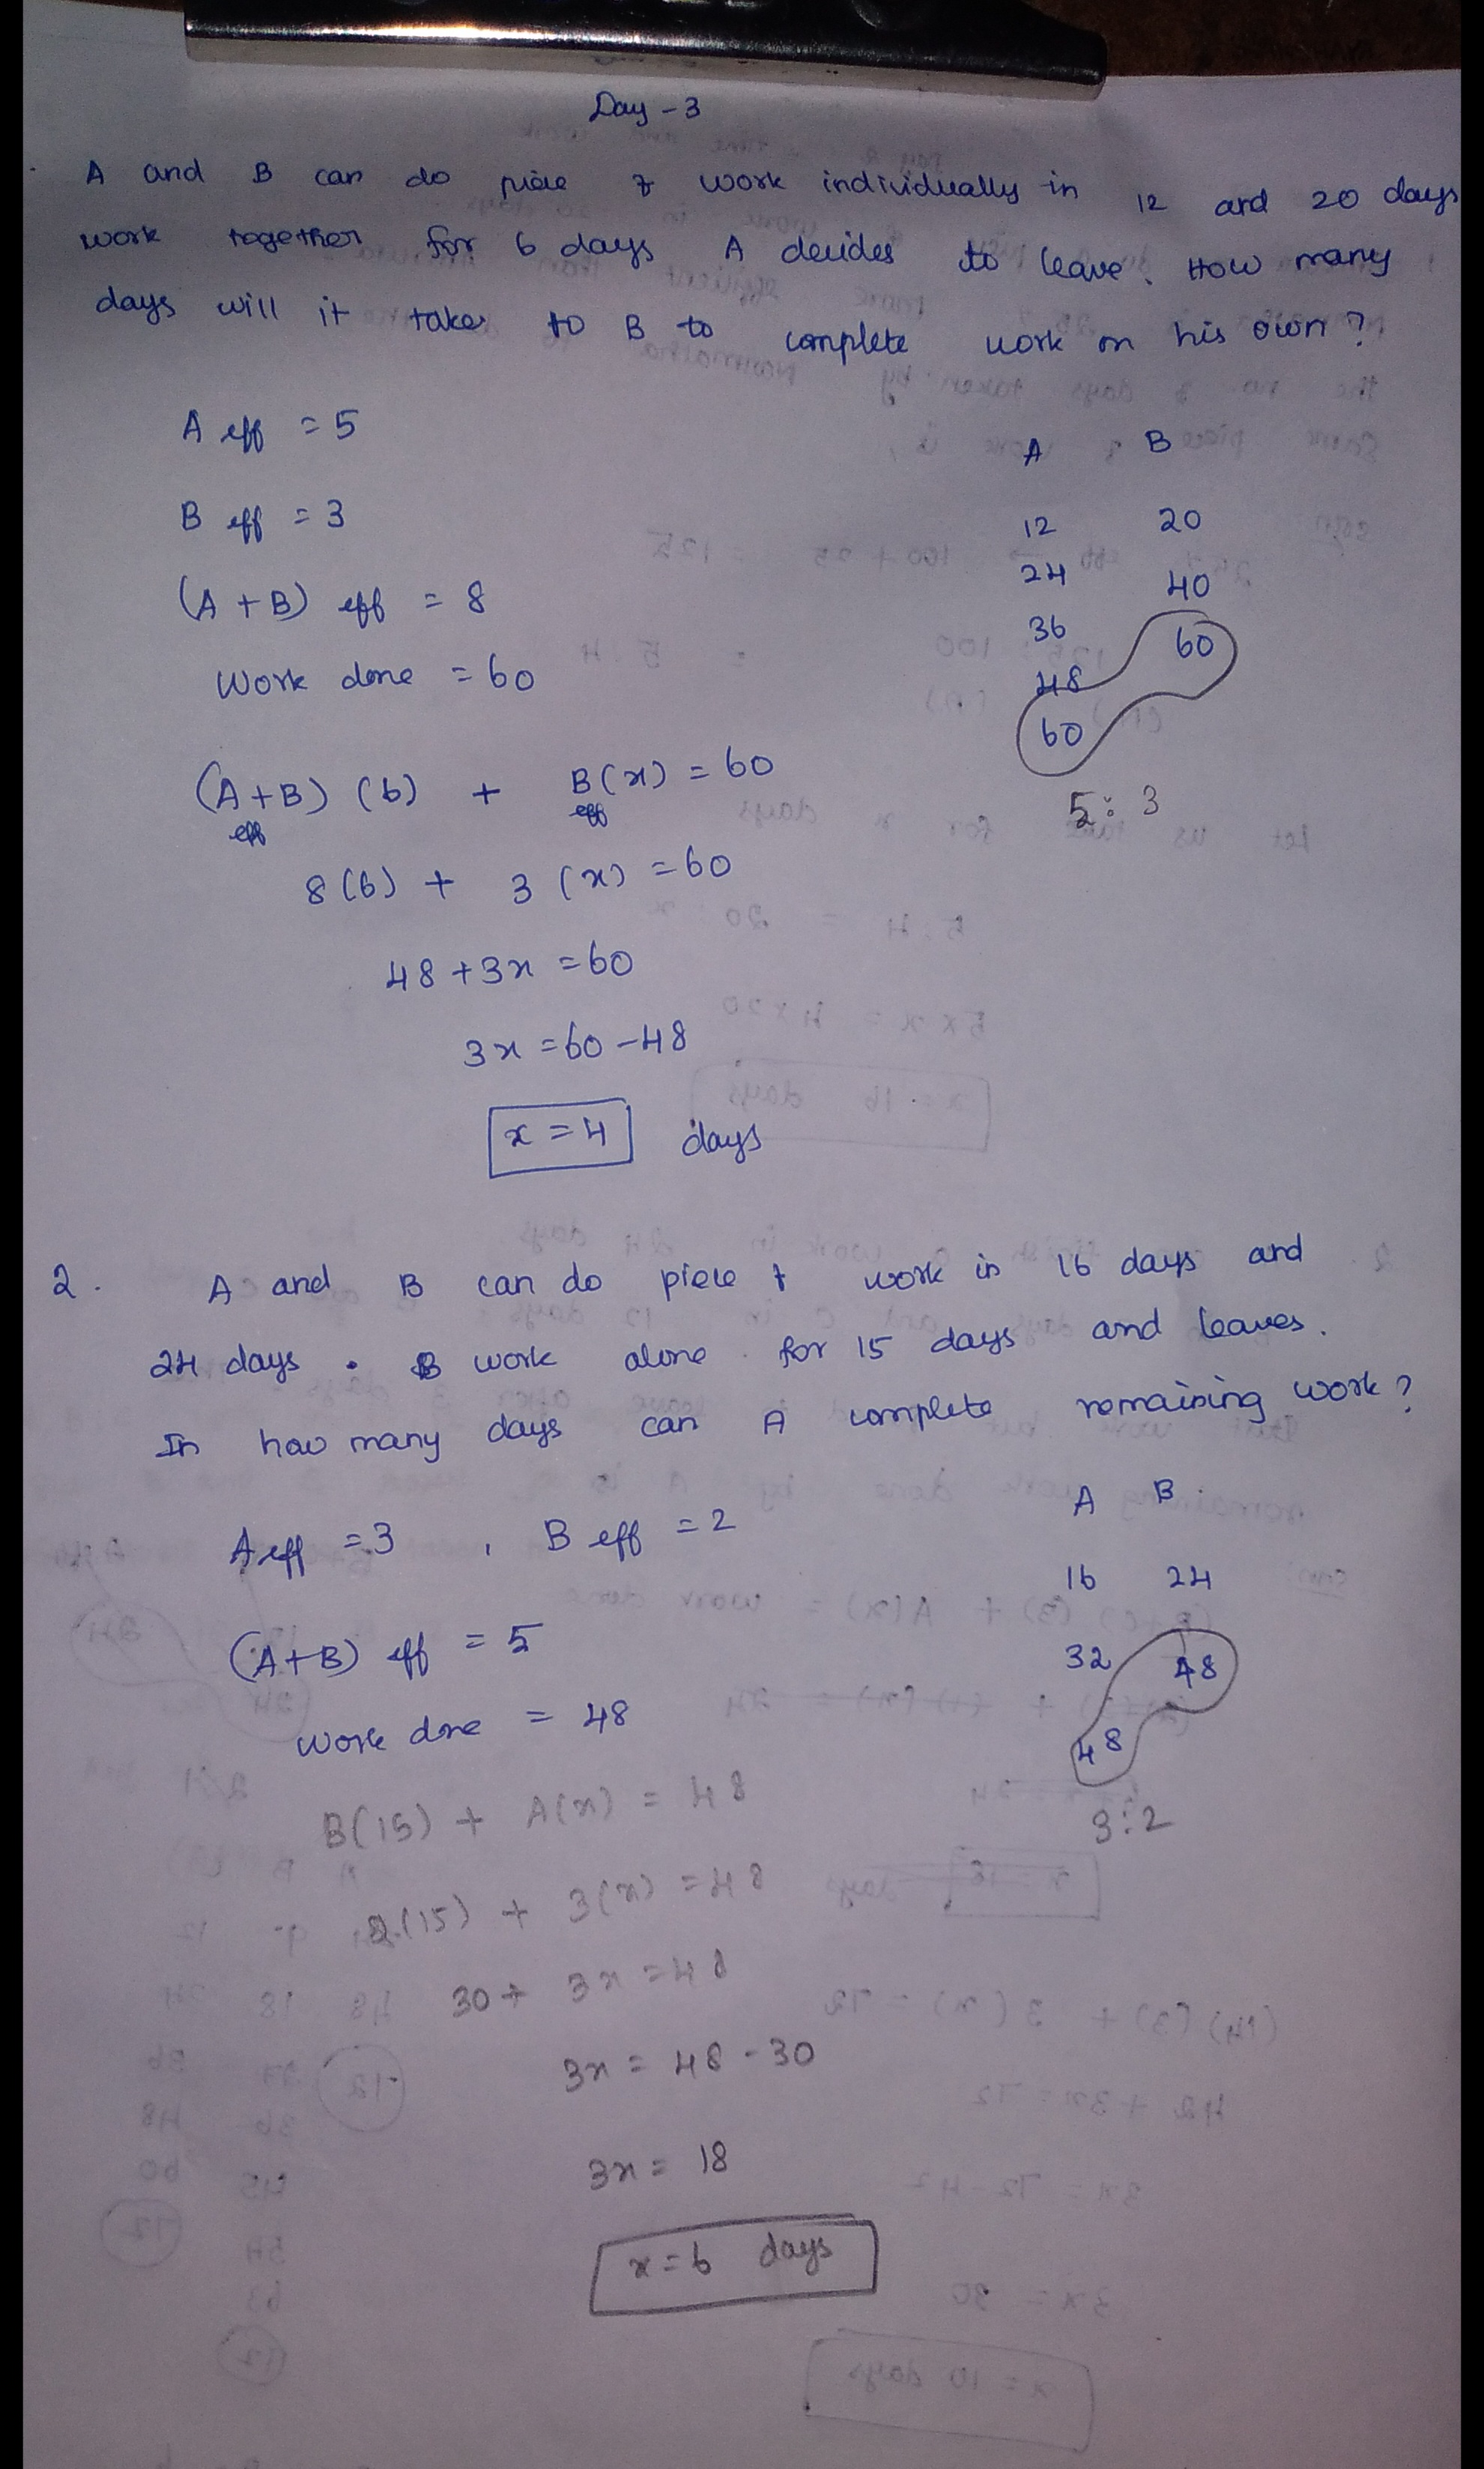 Day - 3
A and B can do piece of work individually in 12 and 20 days
work together for 6 days A decides to leave. How many
days will it takes to B to complete work on his own?
A eff = 5
B eff = 3
(A + B) eff = 8
Work done = 60
A B
12 20
24 40
36 60
48
60
5 : 3
(A+B) (6) + B(x) = 60
eff eff
8(6) + 3(x) = 60
48 + 3x = 60
3x = 60 - 48
x = 4 days
2. A and B can do piece of work in 16 days and
24 days. B work alone for 15 days and leaves.
In how many days can A complete remaining work?
A eff = 3, B eff = 2
(A+B) eff = 5
work done = 48
A B
16 24
32 48
48
3:2
B(15) + A(x) = 48
2(15) + 3(x) = 48
30 + 3x = 48
3x = 48 - 30
3x = 18
x = 6 days